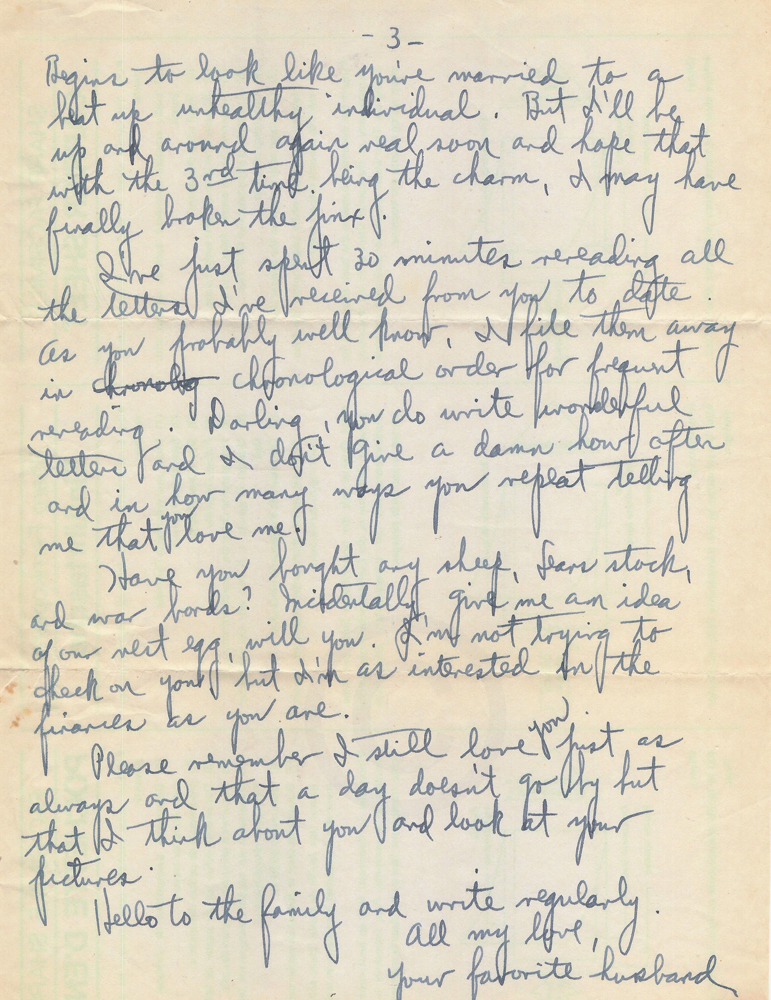 - 3 -
Begins to look like you're married to a
beat up unhealthy individual. But I'll be
up and around again real soon and hope that
with the 3rd time being the charm, I may have
finally broken the jinx.
I've just spent 30 minutes rereading all
the letters I've received from you to date.
As you probably well know, I file them away
in chronolog chronological order for frequent
rereading. Darling, you do write wonderful
letters and I don't give a damn how often
and in how many ways you repeat telling
me that you love me.
Have you bought any sheep, Sears stock,
and war bonds? Incidentally give me an idea
of our nest egg, will you. I'm not trying to
check on you, but I'm as interested in the
finances as you are.
Please remember I still love you just as
always and that a day doesn't go by but
that I think about you and look at your
pictures.
Hello to the family and write regularly.
All my love,
your favorite husband